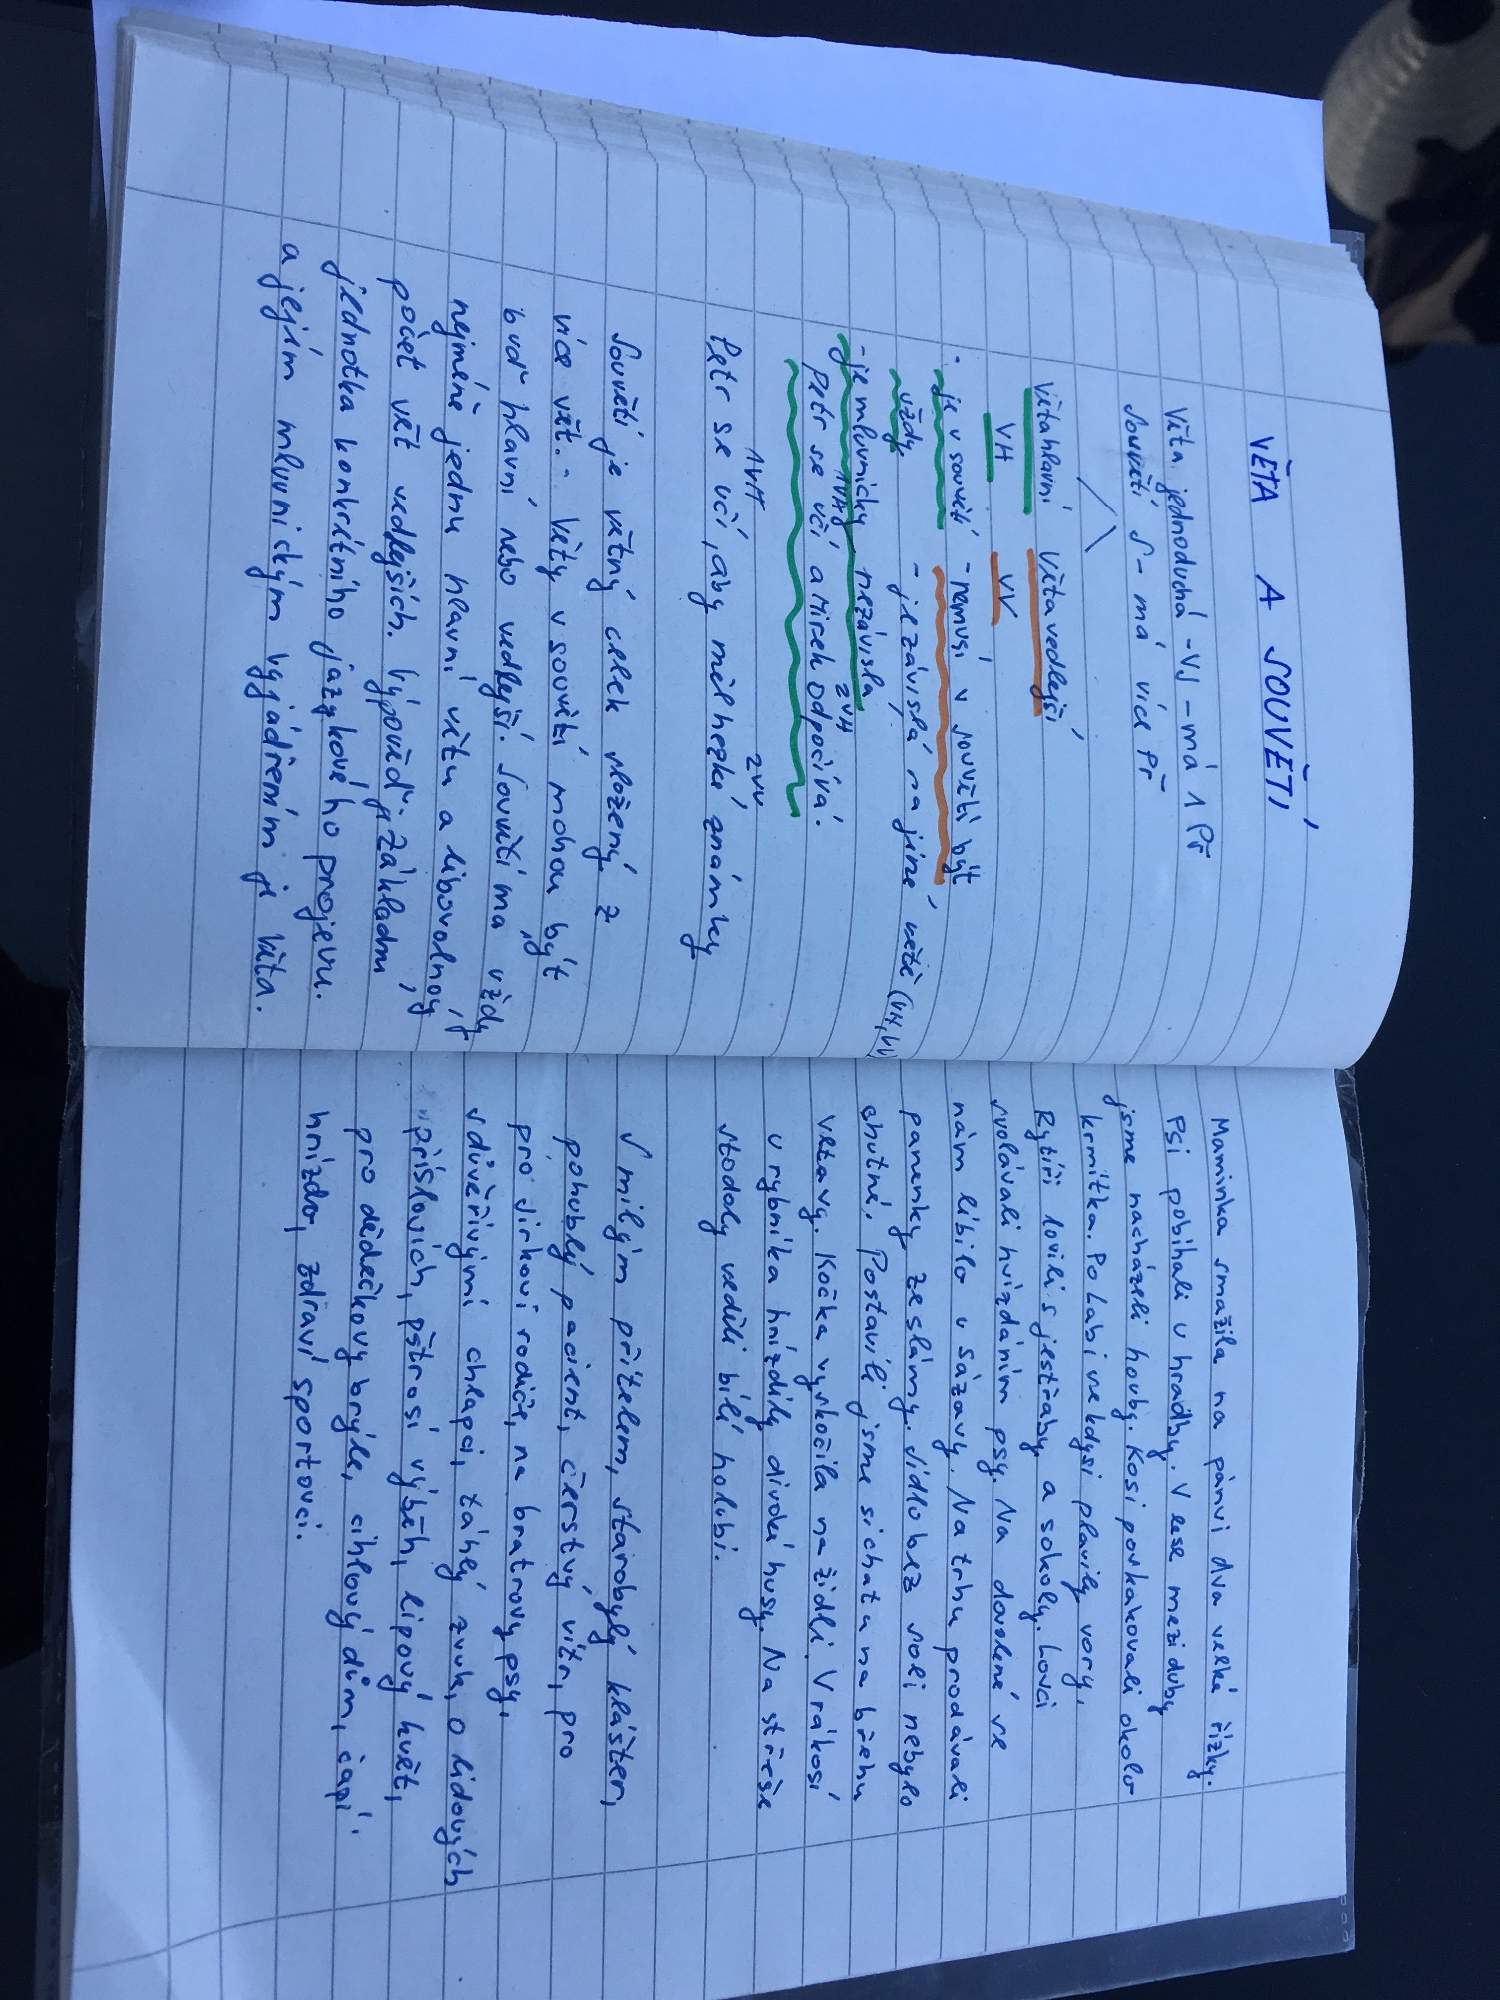 VĚTA A SOUVĚTÍ
Věta jednoduchá - VJ - má 1 Př
Souvětí S - má více Př
Věta hlavní Věta vedlejší
VH VV
- je v souvětí - nemusí v souvětí být
vždy - je závislá na jiné větě (VH, VV)
- je mluvnicky nezávislá
1VH 2VH
Petr se učí a Mirek odpočívá.
1VH 2VV
Petr se učí, aby měl hezké známky
Souvětí je větný celek složený z
více vět. Věty v souvětí mohou být
buď hlavní nebo vedlejší. Souvětí má vždy
nejméně jednu hlavní větu a libovolný
počet vět vedlejších. Výpověď je základní
jednotka konkrétního jazykového projevu.
a jejím mluvnickým vyjádřením je věta.
Maminka smažila na pánvi dva velké řízky.
Psi pobíhali u hradby. V lese mezi duby
jsme nacházeli houby. Kosi poskakovali okolo
krmítka. Po Labi nekdysi plavily vory.
Rytíři lovili s jestřáby a sokoly. Lovci
svolávali hvízdáním psy. Na dovolené se
nám líbilo u Sázavy. Na trhu prodávali
panenky ze slámy. Jídlo bez soli nebylo
chutné. Postavili jsme si chatu na břehu
Vltavy. Kočka vyskočila na židli. V rákosí
u rybníka hnízdily divoké husy. Na střeše
stodoly seděli bílí holubi.
S milým přítelem, starobylý klášter,
pohublý pacient, čerstvý vítr, pro
pro Jirkovi rodiče, na bratrovy psy,
s důvěřivými chlapci, táhlý zvuk, o lidových
příslovích, pštrosí výběh, lipový květ,
pro dědečkovy brýle, cihlový dům, čapí
hnízdo, zdraví sportovci.